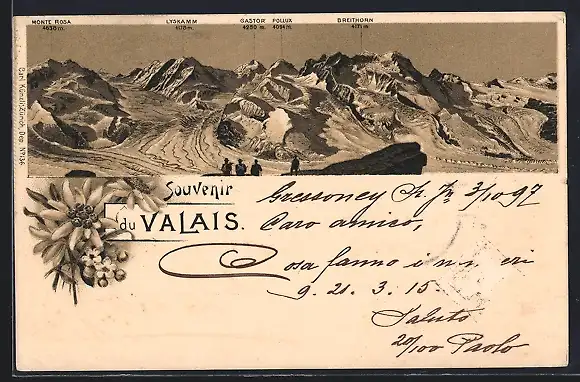 MONTE ROSA LYSKAMM CASTOR POLLUX BREITHORN
4638 m. 4538 m. 4230 m. 4094 m. 4171 m.
Carl Künzli, Zürich, Dep. No. 136
Souvenir
du VALAIS.
Gressoney St Jn 3/10 97
Caro amico,
Cosa fanno i n u eri
9. 21. 3. 15.
Saluto
20/100 Paolo